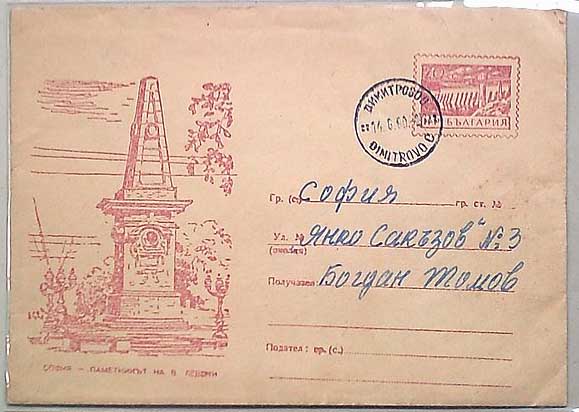 20
БЪЛГАРИЯ
ДИМИТРОВО
14.6.60
DIMITROVO
Гр. (с.) София гр. ст. №
Ул. № „Янко Сакъзов" № 3
Получател: Богдан Томов
Подател: гр. (с.)
СОФИЯ – ПАМЕТНИКЪТ НА В. ЛЕВСКИ